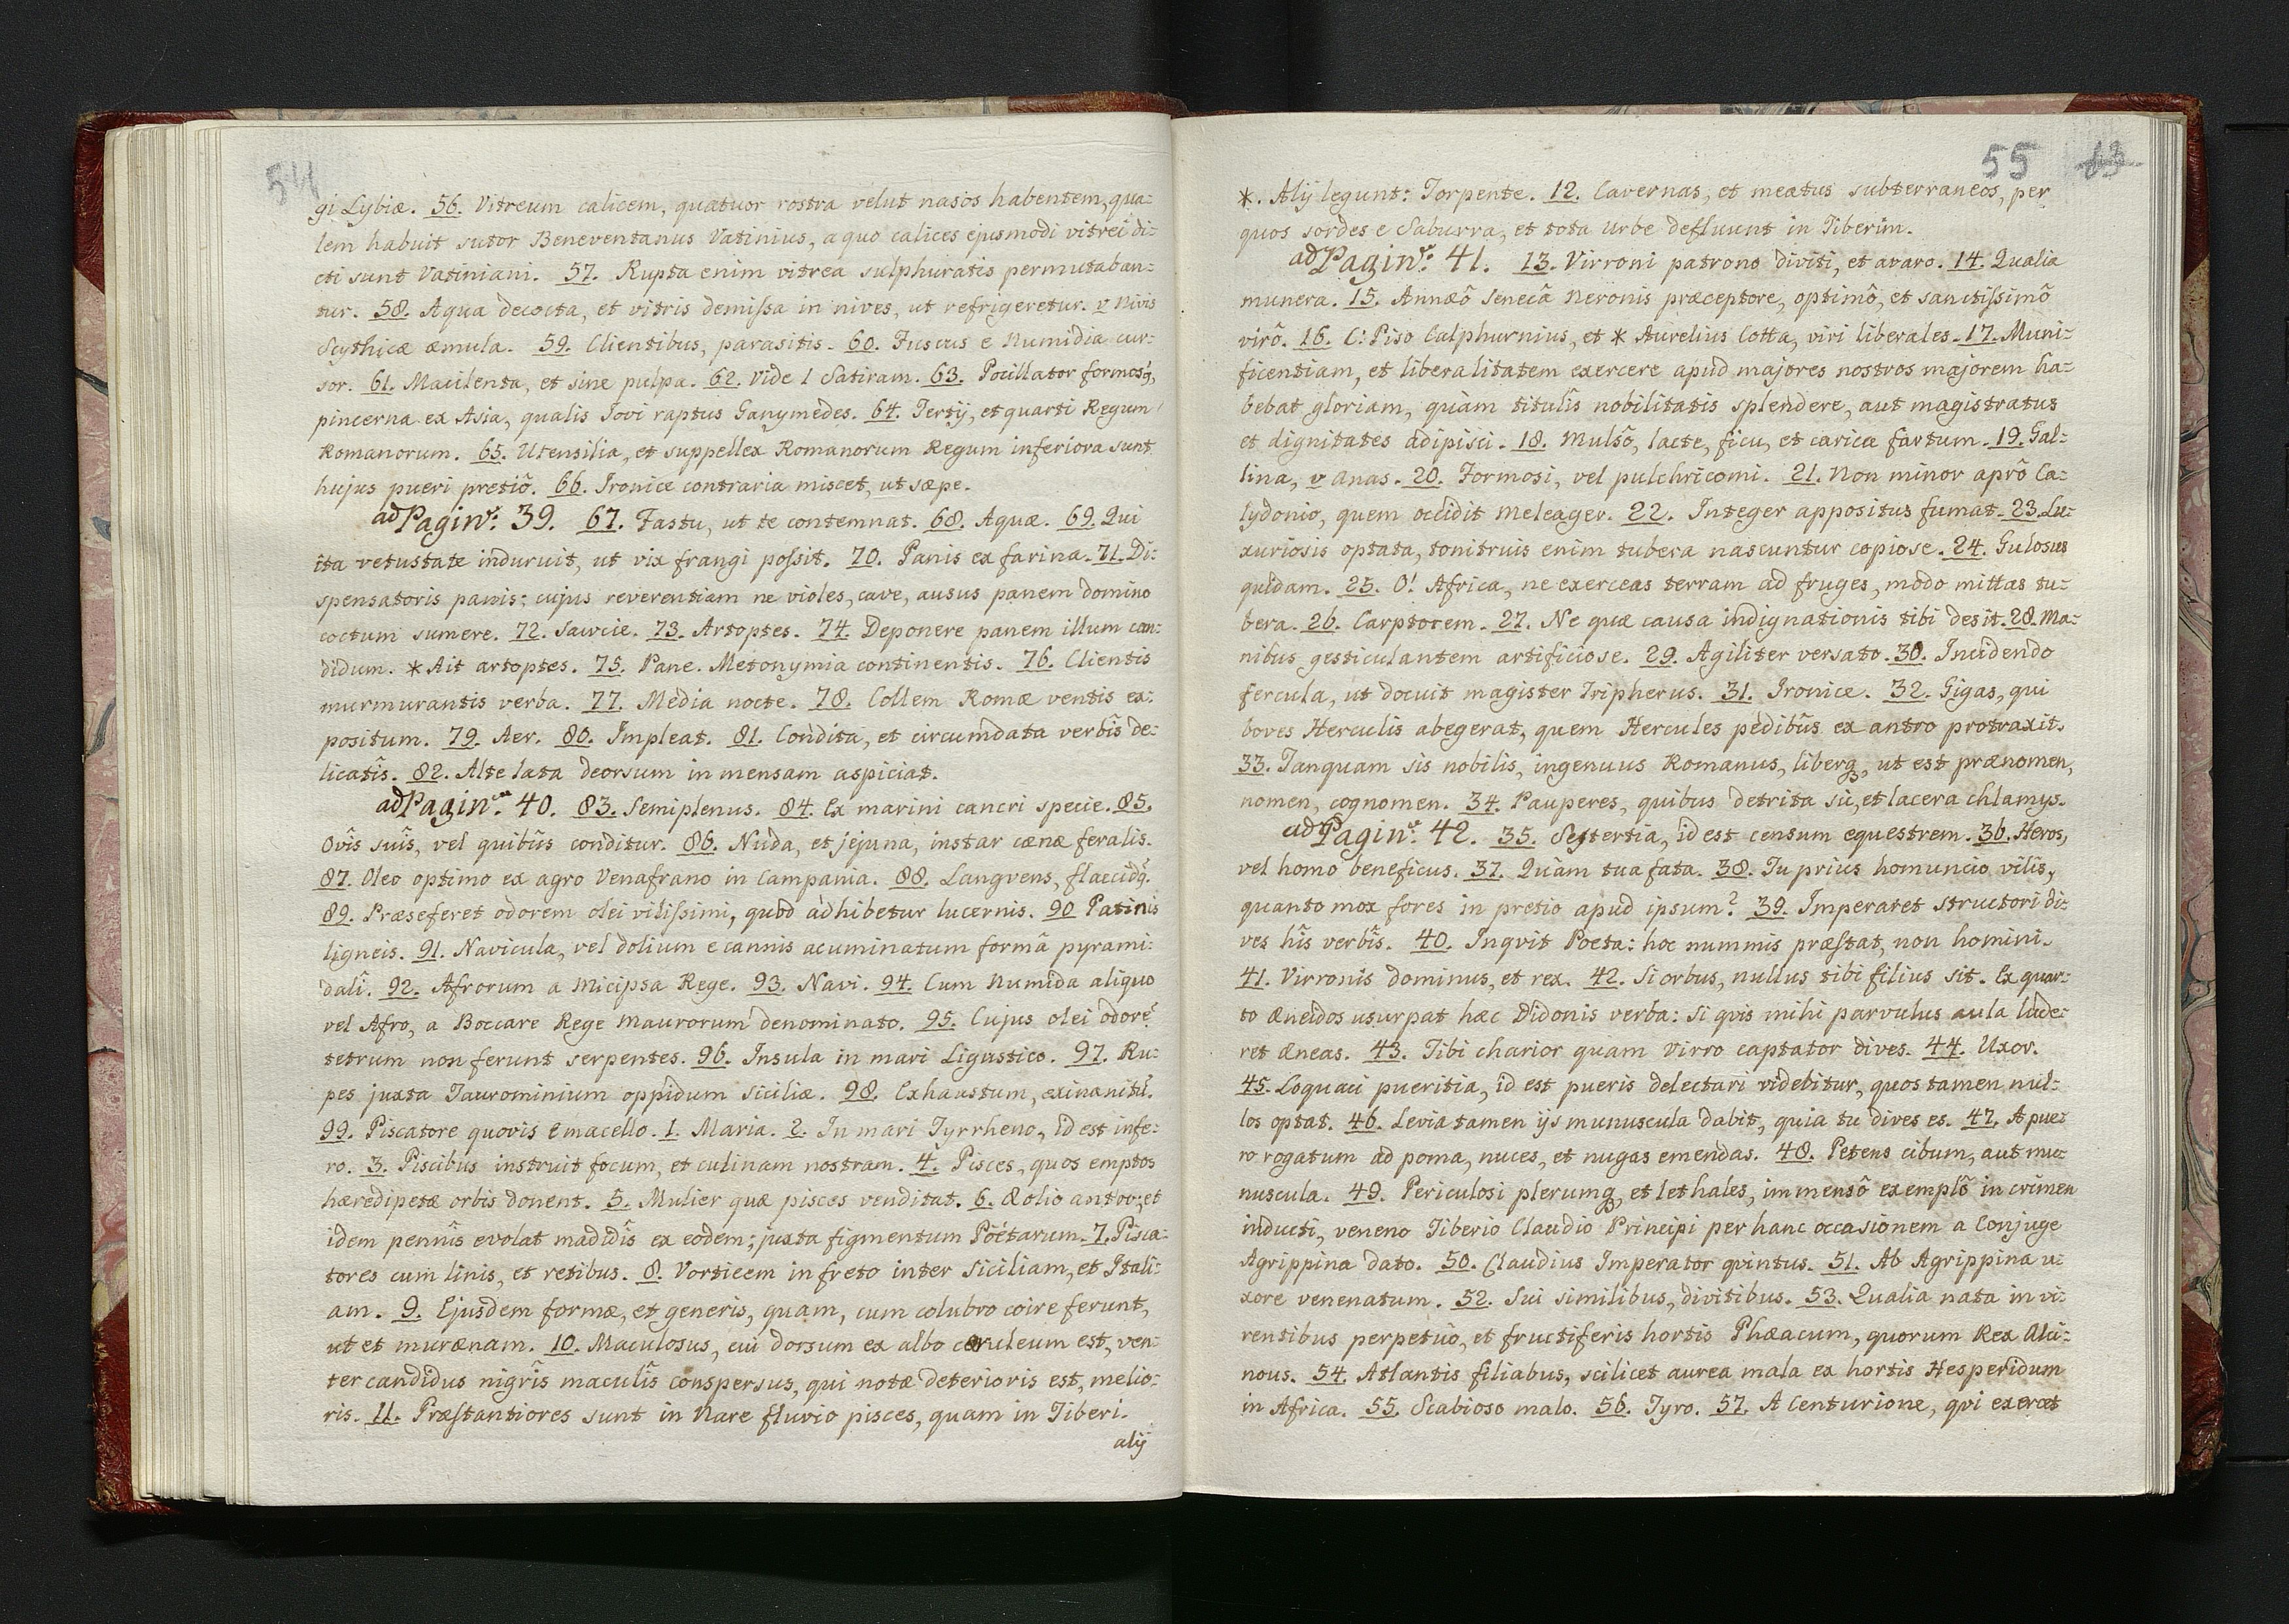 54
gi Lybiæ. 56. Vitreum calicem, quatuor rostra velut nasos habentem, qua-
lem habuit sutor Beneventanus Vatinius, a quo calices ejusmodi vitrei di-
cti sunt Vatiniani. 57. Rupta enim vitrea sulphuratis permutaban-
tur. 58. Aqua decocta, et vitris demissa in nives, ut refrigeretur. v Nivis
Scythicæ æmula. 59. Clientibus, parasitis. 60. Fuscus e Numidia cur-
sor. 61. Macilenta, et sine pulpa. 62. Vide 1 Satiram. 63. Pocillator formosq,
pincerna ex Asia, qualis Jovi raptus Ganymedes. 64. Tertij, et quarti Regum
Romanorum. 65. Utensilia, et suppellex Romanorum Regum inferiora sunt
hujus pueri pretiô. 66. Ironice contraria miscet, ut sæpe.
ad Pagin. 39. 67. Fastu, ut te contemnat. 68. Aquæ. 69. Qui
ita vetustate induruit, ut vix frangi possit. 70. Panis ex farina. 71. Di-
spensatoris panis; cujus reverentiam ne violes, cave, ausus panem domino
coctum sumere. 72. Sawcie. 73. Artoptes. 74. Deponere panem illum can-
didum. * Ait artoptes. 75. Pane. Metonymia continentis. 76. Clientis
murmurantis verba. 77. Media nocte. 78. Collem Romæ ventis ex-
positum. 79. Aer. 80. Impleat. 81. Condita, et circumdata verbis de-
licatîs. 82. Alte lata deorsum in mensam aspiciat.
ad Pagin. 40. 83. Semiplenus. 84. Ex marini cancri specie. 85.
Ovîs suîs, vel quibûs conditur. 86. Nuda, et jejuna, instar cænæ feralis.
87. Oleo optimo ex agro Venafrano in Campania. 88. Langvens, flaccidq.
89. Præseferet odorem olei vilissimi, quod adhibetur lucernis. 90 Patinis
ligneis. 91. Navicula, vel dolium e cannis acuminatum formâ pyrami-
dali. 92. Afrorum a Micipsa Rege. 93. Navi. 94. Cum Numida aliquo
vel Afro, a Boccare Rege Maurorum denominato. 95. Cujus olei odorẽ
tetrum non ferunt serpentes. 96. Insula in mari Ligustico. 97. Ru-
pes juxta Taurominium oppidum Siciliæ. 98. Exhaustum, exinanitũ.
99. Piscatore quovis e macello. 1. Maria. 2. In mari Tyrrheno, id est infe-
ro. 3. Piscibus instruit focum, et culinam nostram. 4. Pisces, quos emptos
hæredipetæ orbis donent. 5. Mulier quæ pisces venditat. 6. Æolio antor; et
idem pennîs evolat madidîs ex eodem; juxta figmentum Poétarum. 7. Pisca-
tores cum linis, et retibus. 8. Vorticem in freto inter Siciliam, et Itali-
am. 9. Ejusdem formæ, et generis, quam, cum colubro coire ferunt,
ut et murænam. 10. Maculosus, cui dorsum ex albo cæruleum est, ven-
ter candidus nigrîs maculîs conspersus, qui notæ deterioris est, melio-
ris. 11. Præstantiores sunt in Nare fluvio pisces, quam in Tiberi.
alij
55 13
*. Alij legunt: Torpente. 12. Cavernas, et meatus subterraneos, per
quos sordes e Saburra, et tota Urbe defluunt in Tiberim.
ad Pagin. 41. 13. Virroni patrono diviti, et avaro. 14. Qualia
munera. 15. Annæô Senecâ Neronis præceptore, optimô, et sanctissimô
virô. 16. C: Piso Calphurnius, et * Aurelius Cotta, viri liberales. 17. Muni-
ficentiam, et liberalitatem exercere apud majores nostros majorem ha-
bebat gloriam, quàm titulîs nobilitatis splendere, aut magistratus
et dignitates adipisci. 18. Mulsô, lacte, ficu, et carica fartum. 19. Gal-
lina, v Anas. 20. Formosi, vel pulchricomi. 21. Non minor aprô Ca-
lydonio, quem occidit Meleager. 22. Integer appositus fumat. 23. Lu-
xuriosis optata, tonitruis enim tubera nascuntur copiose. 24. Gulosus
quidam. 25. O! Africa, ne exerceas terram ad fruges, modo mittas tu-
bera. 26. Carptorem. 27. Ne quæ causa indignationis tibi desit. 28. Ma-
nibus gesticulantem artificiose. 29. Agiliter versato. 30. Incidendo
fercula, ut docuit magister Tripherus. 31. Ironice. 32. Gigas, qui
boves Herculis abegerat, quem Hercules pedibûs ex antro protraxit.
33. Tanquam sis nobilis, ingenuus Romanus, liberq, ut est prænomen,
nomen, cognomen. 34. Pauperes, quibus detrita sit, et lacera chlamys.
ad Pagin. 42. 35. Sestertia, id est censum equestrem. 36. Heros,
vel homo beneficus. 37. Quàm tua fata. 38. Tu prius homuncio vilis,
quanto mox fores in pretio apud ipsum? 39. Imperaret structori di-
ves hîs verbîs. 40. Inqvit Poeta: hoc nummis præstat, non homini.
41. Virronis dominus, et rex. 42. Si orbus, nullus tibi filius sit. Ex quar-
to Æneidos usurpat hæc Didonis verba: Si qvis mihi parvulus aula lude-
ret Æneas. 43. Tibi charior quam Virro captator dives. 44. Uxor.
45. Loquaci pueritia, id est pueris delectari videbitur, quos tamen nul-
los optat. 46. Levia tamen ijs munuscula dabit, quia tu dives es. 47. A pue-
ro rogatum ad poma, nuces, et nugas emendas. 48. Petens cibum, aut mu-
nuscula. 49. Periculosi plerumq, et lethales, immensô exemplô in crimen
inducti, veneno Tiberio Claudio Principi per hanc occasionem a Conjuge
Agrippina dato. 50. Claudius Imperator qvintus. 51. Ab Agrippina u-
xore venenatum. 52. Sui similibus, divitibus. 53. Qualia nata in vi-
rentibus perpetuo, et fructiferis hortis Phæacum, quorum Rex Alci-
nous. 54. Atlantis filiabus, scilicet aurea mala ex hortis Hesperidum
in Africa. 55. Scabioso malo. 56. Tyro. 57. A Centurione, qvi exercet